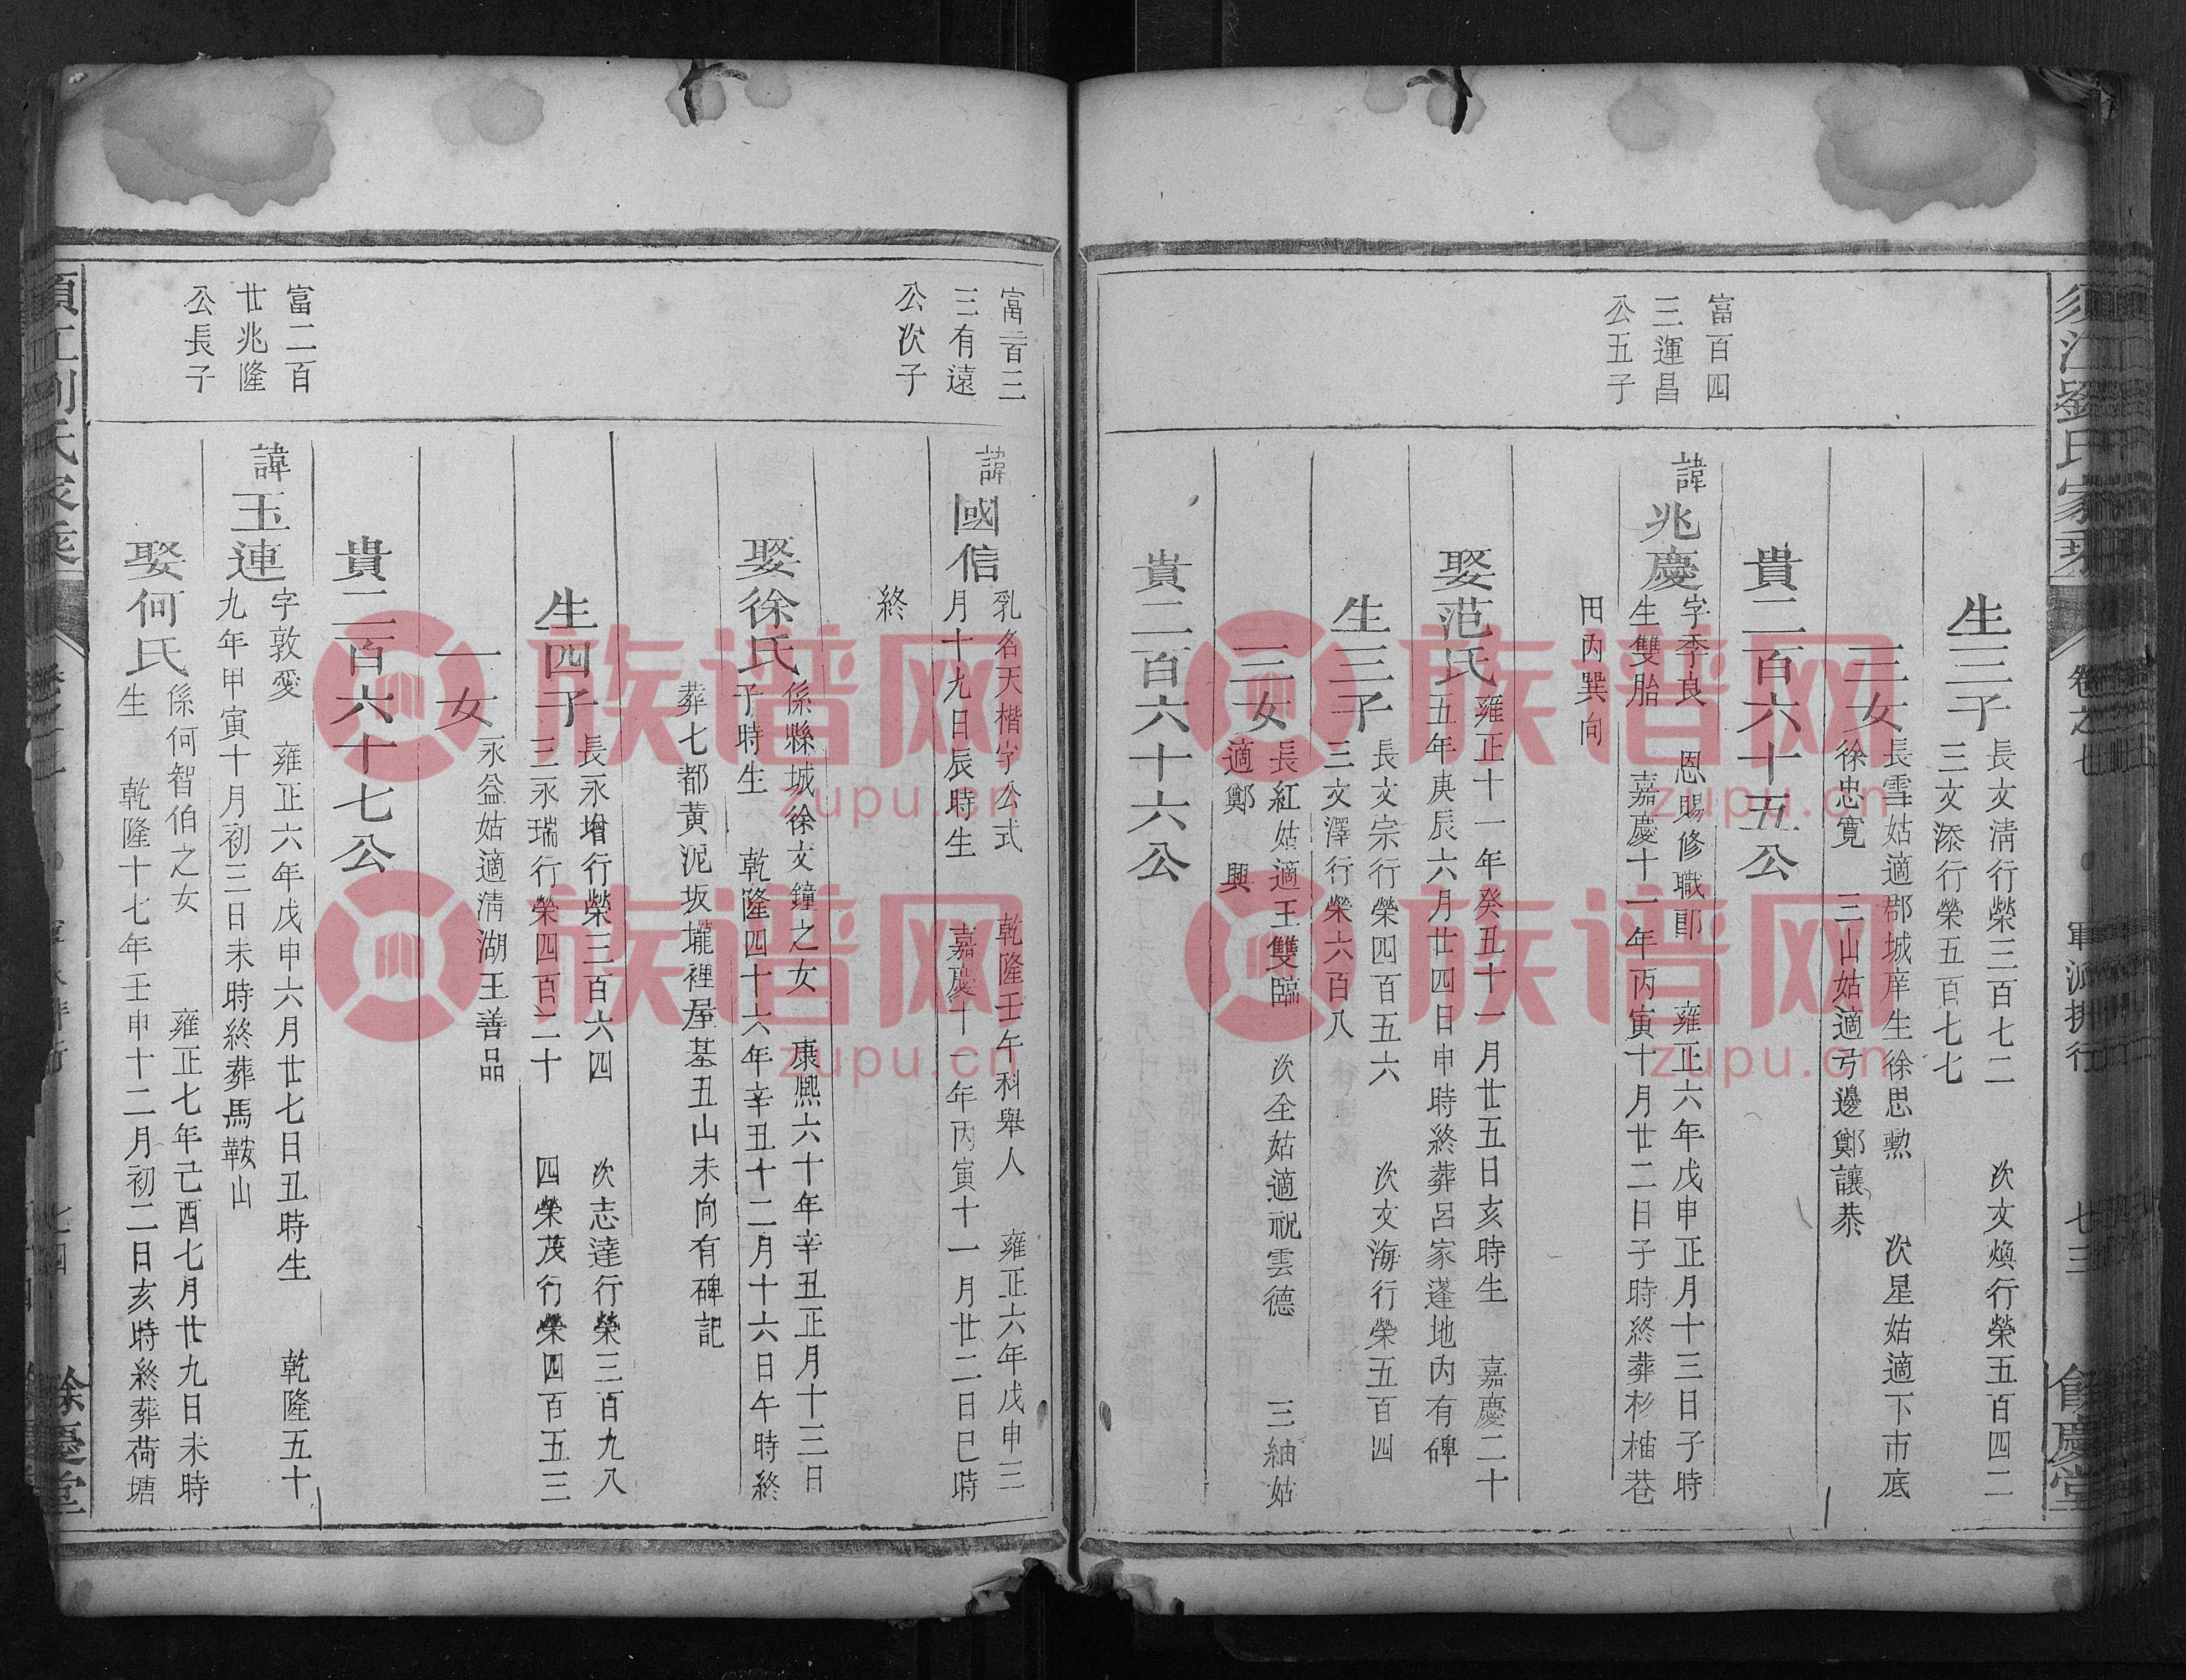 須江劉氏家乘
卷之七
軍派排行
七三
餘慶堂
生三子
長文淸行榮三百七二
次文煥行榮五百四二
三文添行榮五百七七
三女
長雪姑適郡城庠生徐思勲
次星姑適下市底
徐忠寛
三山姑適弓邊鄭讓恭
貴二百六十五公
富百四
三運昌
公五子
諱兆慶
字季良
恩賜修職郎
雍正六年戊申正月十三日子時
生雙胎
嘉慶十一年丙寅十月廿二日子時終葬杉柚巷
田丙巽向
娶范氏
雍正十一年癸丑十一月廿五日亥時生
嘉慶二十
五年庚辰六月廿四日申時終葬呂家蓬地內有碑
生三子
長文宗行榮四百五六
次文海行榮五百四
三文澤行榮六百八
三女
長紅姑適王雙臨
次全姑適祝雲德
三紬姑
適鄭
興
貴二百六十六公
富二百二
三有遠
公次子
諱國信
乳名天楷字公式
乾隆壬午科舉人
雍正六年戊申三
月十九日辰時生
嘉慶十一年丙寅十一月廿二日巳時
終
娶徐氏
係縣城徐文鐘之女
康熙六十年辛丑正月十三日
子時生
乾隆四十六年辛丑十二月十六日午時終
葬七都黃泥坂壠裡屋基丑山未向有碑記
生四子
長永增行榮三百六四
次志達行榮三百九八
三永瑞行榮四百二十
四榮茂行榮四百五三
一女
永益姑適淸湖王善品
貴二百六十七公
富二百
廿兆隆
公長子
諱玉連
字敦愛
雍正六年戊申六月廿七日丑時生
乾隆五十
九年甲寅十月初三日未時終葬馬鞍山
娶何氏
係何智伯之女
雍正七年己酉七月廿九日未時
生
乾隆十七年壬申十二月初二日亥時終葬荷塘
七四
餘慶堂
族谱网
zupu.cn
族谱网
zupu.cn
族谱网
zupu.cn
族谱网
zupu.cn